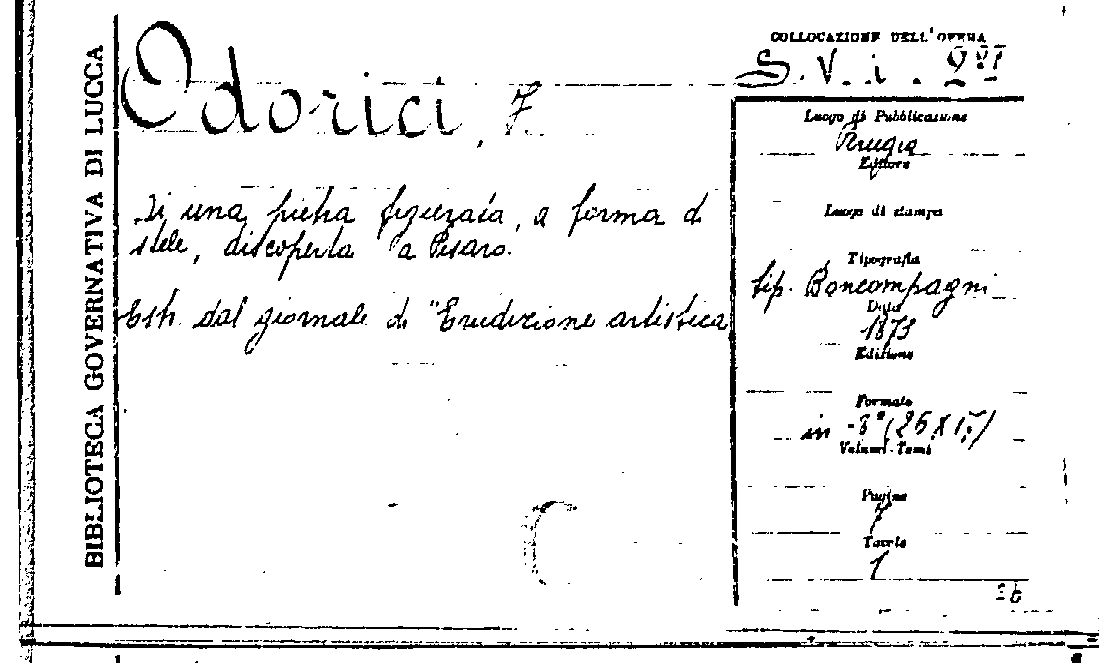 BIBLIOTECA GOVERNATIVA DI LUCCA
Odorici, F.
Di una pietra figurata, a forma di
stele, discoperta a Pesaro.
Estr. dal giornale di "Erudizione artistica
COLLOCAZIONE DELL'OPERA
S. V. i.
Luogo di Pubblicazione
Perugia
Editore
Luogo di stampa
Tipografia
tip. Boncompagni
Data
1873
Edizione
Formato
in -8°
Volumi-Tomi
Pagine
7
Tavole
1